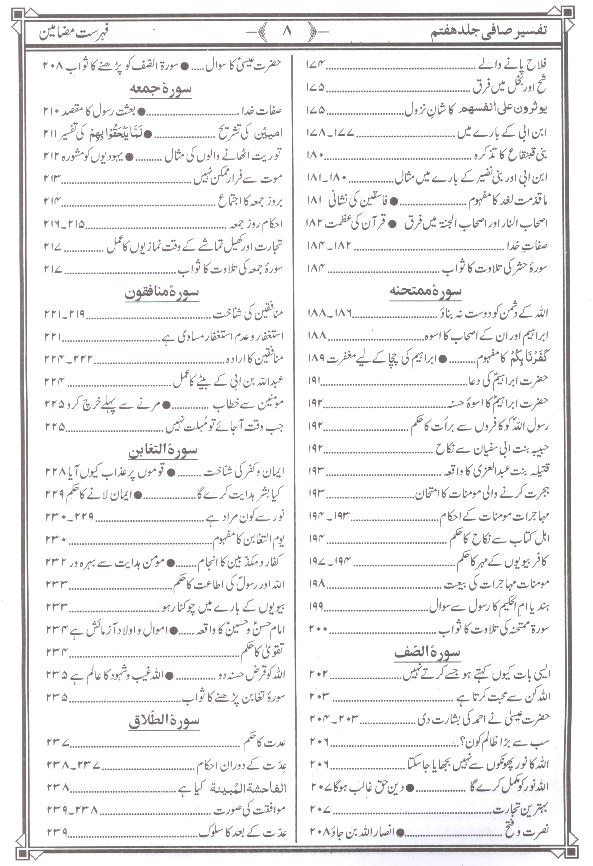 تفسیر صافی جلد ہفتم
۸
فہرست مضامین
فلاح پانے والے ۱۷۴
شح اور بخل میں فرق ۱۷۵
یوثرون علی انفسھم کا شان نزول ۱۷۵
ابن ابی کے بارے میں ۱۷۷۔۱۷۸
بنی قینقاع کا تذکرہ ۱۸۰
ابن ابی اور بنی نضیر کے بارے میں مثال ۱۸۰۔۱۸۱
ماقدمت لغد کا مفہوم ● فاسقین کی نشانی ۱۸۱
اصحاب النار اور اصحاب الجنۃ میں فرق ● قرآن کی عظمت ۱۸۲
صفاتِ خدا ۱۸۲۔۱۸۴
سورۂ حشر کی تلاوت کا ثواب ۱۸۴
سورۂ ممتحنہ
اللہ کے دشمن کو دوست نہ بناؤ ۱۸۶۔۱۸۸
ابراہیم اور ان کے اصحاب کا اسوہ ۱۸۸
كَفَرْنَا بِكُمْ کا مفہوم ● ابراہیم کی چچا کے لیے مغفرت ۱۸۹
حضرت ابراہیمؑ کی دعا ۱۹۱
حضرت ابراہیمؑ کا اسوۂ حسنہ ۱۹۲
رسول اللہؐ کو کافروں سے برأت کا حکم ۱۹۲
حبیبہ بنت ابی سفیان سے نکاح ۱۹۲
قتیلہ بنت عبدالعزیٰ کا واقعہ ۱۹۳
ہجرت کرنے والی مومنات کا امتحان ۱۹۳
مہاجرات مومنات کے احکام ۱۹۳۔۱۹۴
اہل کتاب سے نکاح کا حکم ۱۹۴
کافر بیویوں کے مہر کا حکم ۱۹۴۔۱۹۷
مومنات مہاجرات کی بیعت ۱۹۸
ہند یا ام الحکیم کا رسول سے سوال ۱۹۹
سورۂ ممتحنہ کی تلاوت کا ثواب ۲۰۰
سورۂ الصّف
ایسی بات کیوں کہتے ہو جسے کرتے نہیں ۲۰۲
اللہ کن سے محبت کرتا ہے ۲۰۳
حضرت عیسیٰؑ نے احمد کی بشارت دی ۲۰۳۔۲۰۴
سب سے بڑا ظالم کون؟ ۲۰۶
اللہ کا نور پھونکوں سے نہیں بجھایا جا سکتا ۲۰۶
اللہ نور کو مکمل کرے گا ● دین حق غالب ہوگا ۲۰۷
بہترین تجارت ۲۰۷
نصرت و فتح ● انصار اللہ بن جاؤ ۲۰۸
حضرت عیسیٰؑ کا سوال ● سورۃ الصّف کو پڑھنے کا ثواب ۲۰۸
سورۂ جمعہ
صفات خدا ● بعثت رسول کا مقصد ۲۱۰
امیین کی تشریح ● لَمَّا يَلْحَقُوا بِهِمْ کی تفسیر ۲۱۱
توریت اٹھانے والوں کی مثال ● یہودیوں کو مشورہ ۲۱۲
موت سے فرار ممکن نہیں ۲۱۳
بروز جمعہ کا اجتماع ۲۱۴
احکام روز جمعہ ۲۱۵۔۲۱۶
تجارت اور کھیل تماشے کے وقت نمازیوں کا عمل ۲۱۷
سورۂ جمعہ کی تلاوت کا ثواب ۲۱۷
سورۂ منافقون
منافقین کی شناخت ۲۱۹۔۲۲۱
استغفار و عدم استغفار مساوی ہے ۲۲۱
منافقین کا ارادہ ۲۲۲۔۲۲۴
عبداللہ بن ابی کے بیٹے کا عمل ۲۲۴
مومنین سے خطاب ● مرنے سے پہلے خرچ کرو ۲۲۵
جب وقت آجائے تو مہلت نہیں ۲۲۵
سورۃ التغابن
ایمان و کفر کی شناخت ● قوموں پر عذاب کیوں آیا ۲۲۸
کیا بشر ہدایت کرے گا ● ایمان لانے کا حکم ۲۲۹
نور سے کون مراد ہے ۲۲۹۔۲۳۰
یوم التغابن کا مفہوم ۲۳۰
کفار و مکذبین کا انجام ● مومن ہدایت سے بہرہ ور ۲۳۲
اللہ اور رسولؐ کی اطاعت کا حکم ۲۳۳
بیویوں کے بارے میں چوکنا رہو ۲۳۳
امام حسنؑ و حسینؑ کا واقعہ ● اموال و اولاد آزمائش ہے ۲۳۴
تقویٰ کا حکم ۲۳۴
اللہ کو قرض حسنہ دو ● اللہ غیب و شہود کا عالم ہے ۲۳۵
سورۂ تغابن پڑھنے کا ثواب ۲۳۵
سورۃ الطّلاق
عدت کا حکم ۲۳۷
عدّت کے دوران احکام ۲۳۷۔۲۳۸
الفاحشة المبينة کیا ہے ۲۳۸
موافقت کی صورت ۲۳۸۔۲۳۹
عدّت کے بعد کا سلوک ۲۳۹